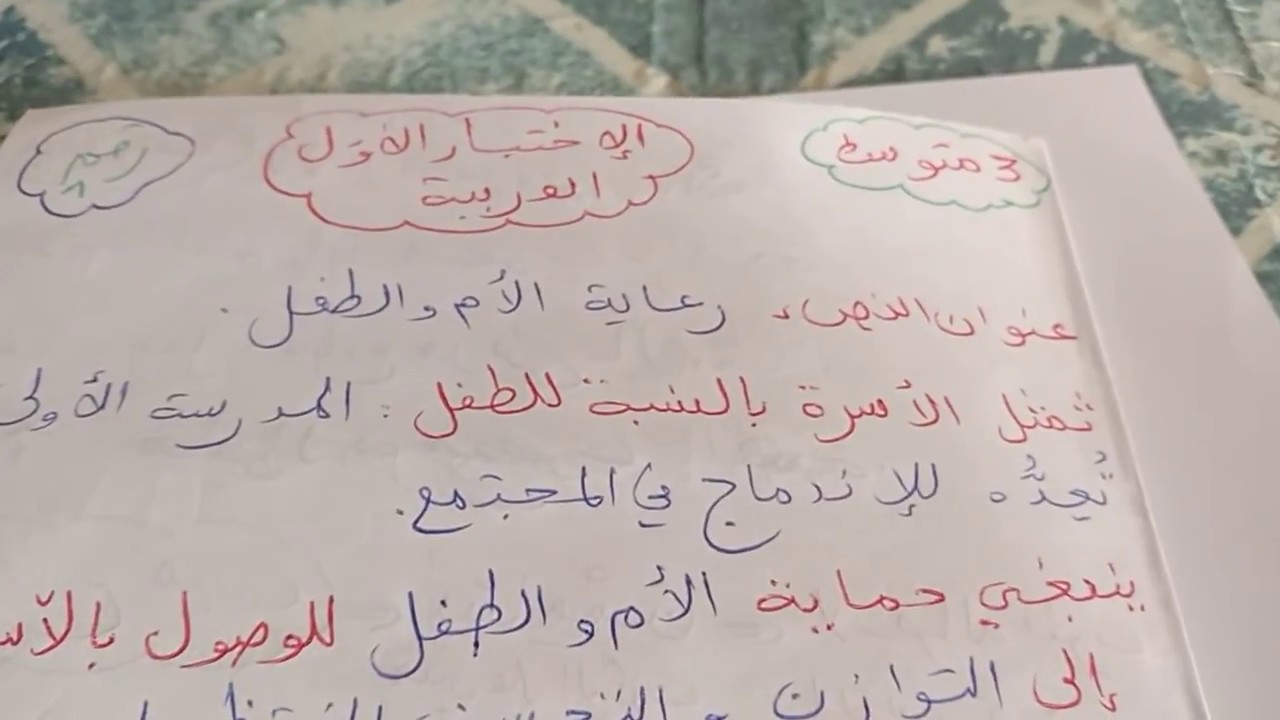 3 متوسط
الإختبار الأوّل
العربية
رقم
1
عنوان النص، رعاية الأم والطفل.
تمثل الأسرة بالنسبة للطفل: المدرسة الأولى
تُعِدُّه للإندماج في المجتمع.
ينبغي حماية الأم والطفل للوصول
إلى التوازن